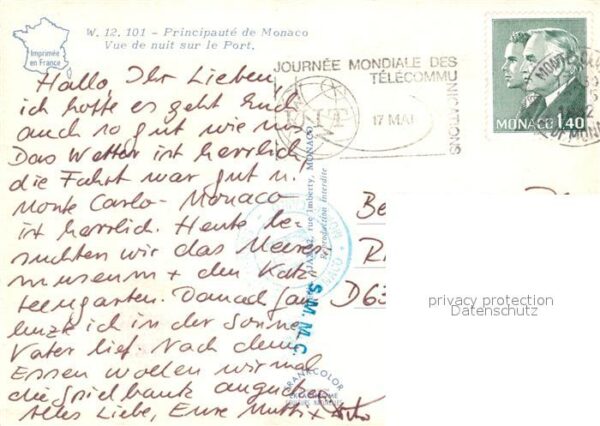 W. 12. 101 - Principauté de Monaco
Vue de nuit sur le Port.
Imprimée
en France
Hallo, Ihr Lieben,
ich hoffe es geht Euch
auch so gut wie uns.
Das Wetter ist herrlich,
die Fahrt war gut u.
Monte Carlo - Monaco
ist herrlich. Heute be-
suchten wir das Meeres-
museum + den Kak-
teengarten. Danach faul-
lenzte ich in der Sonne,
Vater lief. Nach dem
Essen wollen wir mal
die Spielbank angucken.
Alles Liebe, Eure Mutti +
JOURNÉE MONDIALE DES
TÉLÉCOMMUNICATIONS
17 MAI
MONACO 1,40
MONTE-CARLO
rue Imberty, MONACO
Reproduction Interdite
S.M.M.C.
FRANKCOLOR
Be
R
D63
privacy protection
Datenschutz